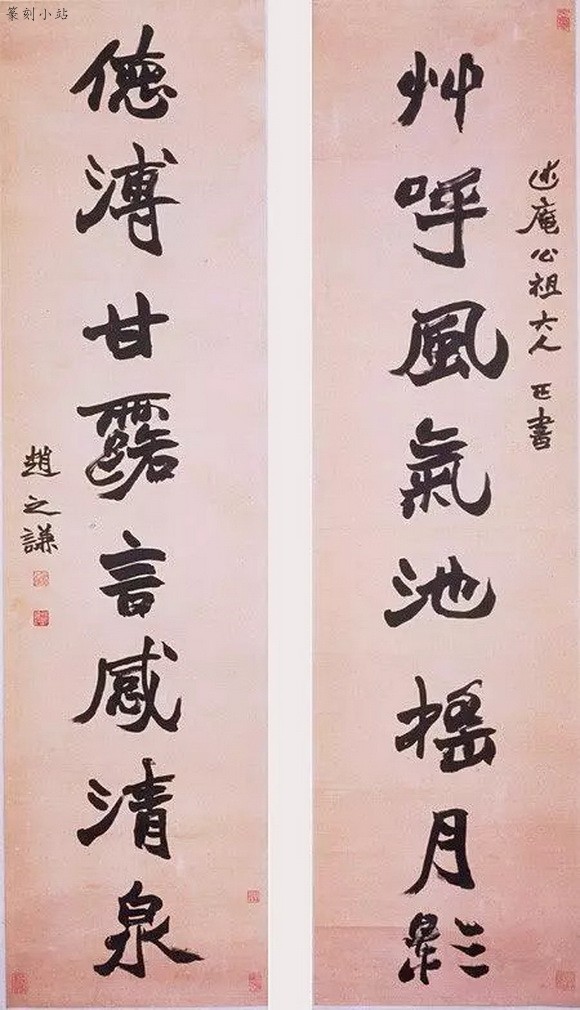 篆刻小站
述庵公祖大人 正書
艸呼風氣池搖月影
德溥甘露言感清泉
趙之謙